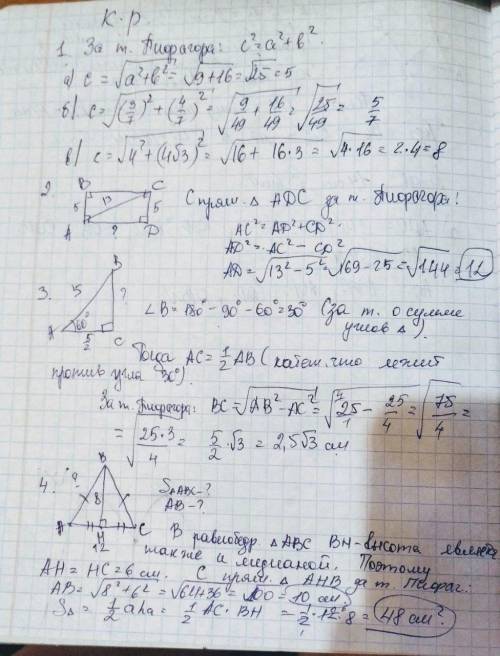 К.Р
1. За т. Пифагора: c²=a²+b².
а) c = √a²+b² = √9+16 = √25 = 5
б) c = √(3/7)²+(4/7)² = √9/49 + 16/49 = √25/49 = 5/7
в) c = √4²+(4√3)² = √16+16·3 = √4·16 = 2·4=8
2. B C С прям. △ ADC за т. Пифагора:
5 13 5
A ? D
AC² = AD²+CD².
AD² = AC² − CD²
AD = √13²−5² = √169−25 = √144 = 12
3. B
5 ?
A 60° C
5/2
∠B = 180°−90°−60°=30° (за т. о сумме
углов △).
Тогда AC = 1/2 AB (катет, что лежит
против угла 30°).
За т. Пифагора: BC = √AB²−AC² = √25/1 − 25/4 = √75/4 =
= √25·3/4 = 5/2·√3 = 2,5√3 см
4. B
? 8
A H C
12
S△ABC-?
AB-?
В равнобедр. △ABC BH-высота являетс
также и медианой. Поэтому
AH = HC = 6 см. С прям. △ AHB за т. Пифаг.:
AB = √8²+6² = √64+36 = √100 = 10 см
S△ = 1/2 aha = 1/2 AC·BH = 1/2·12·8 = 48 см².